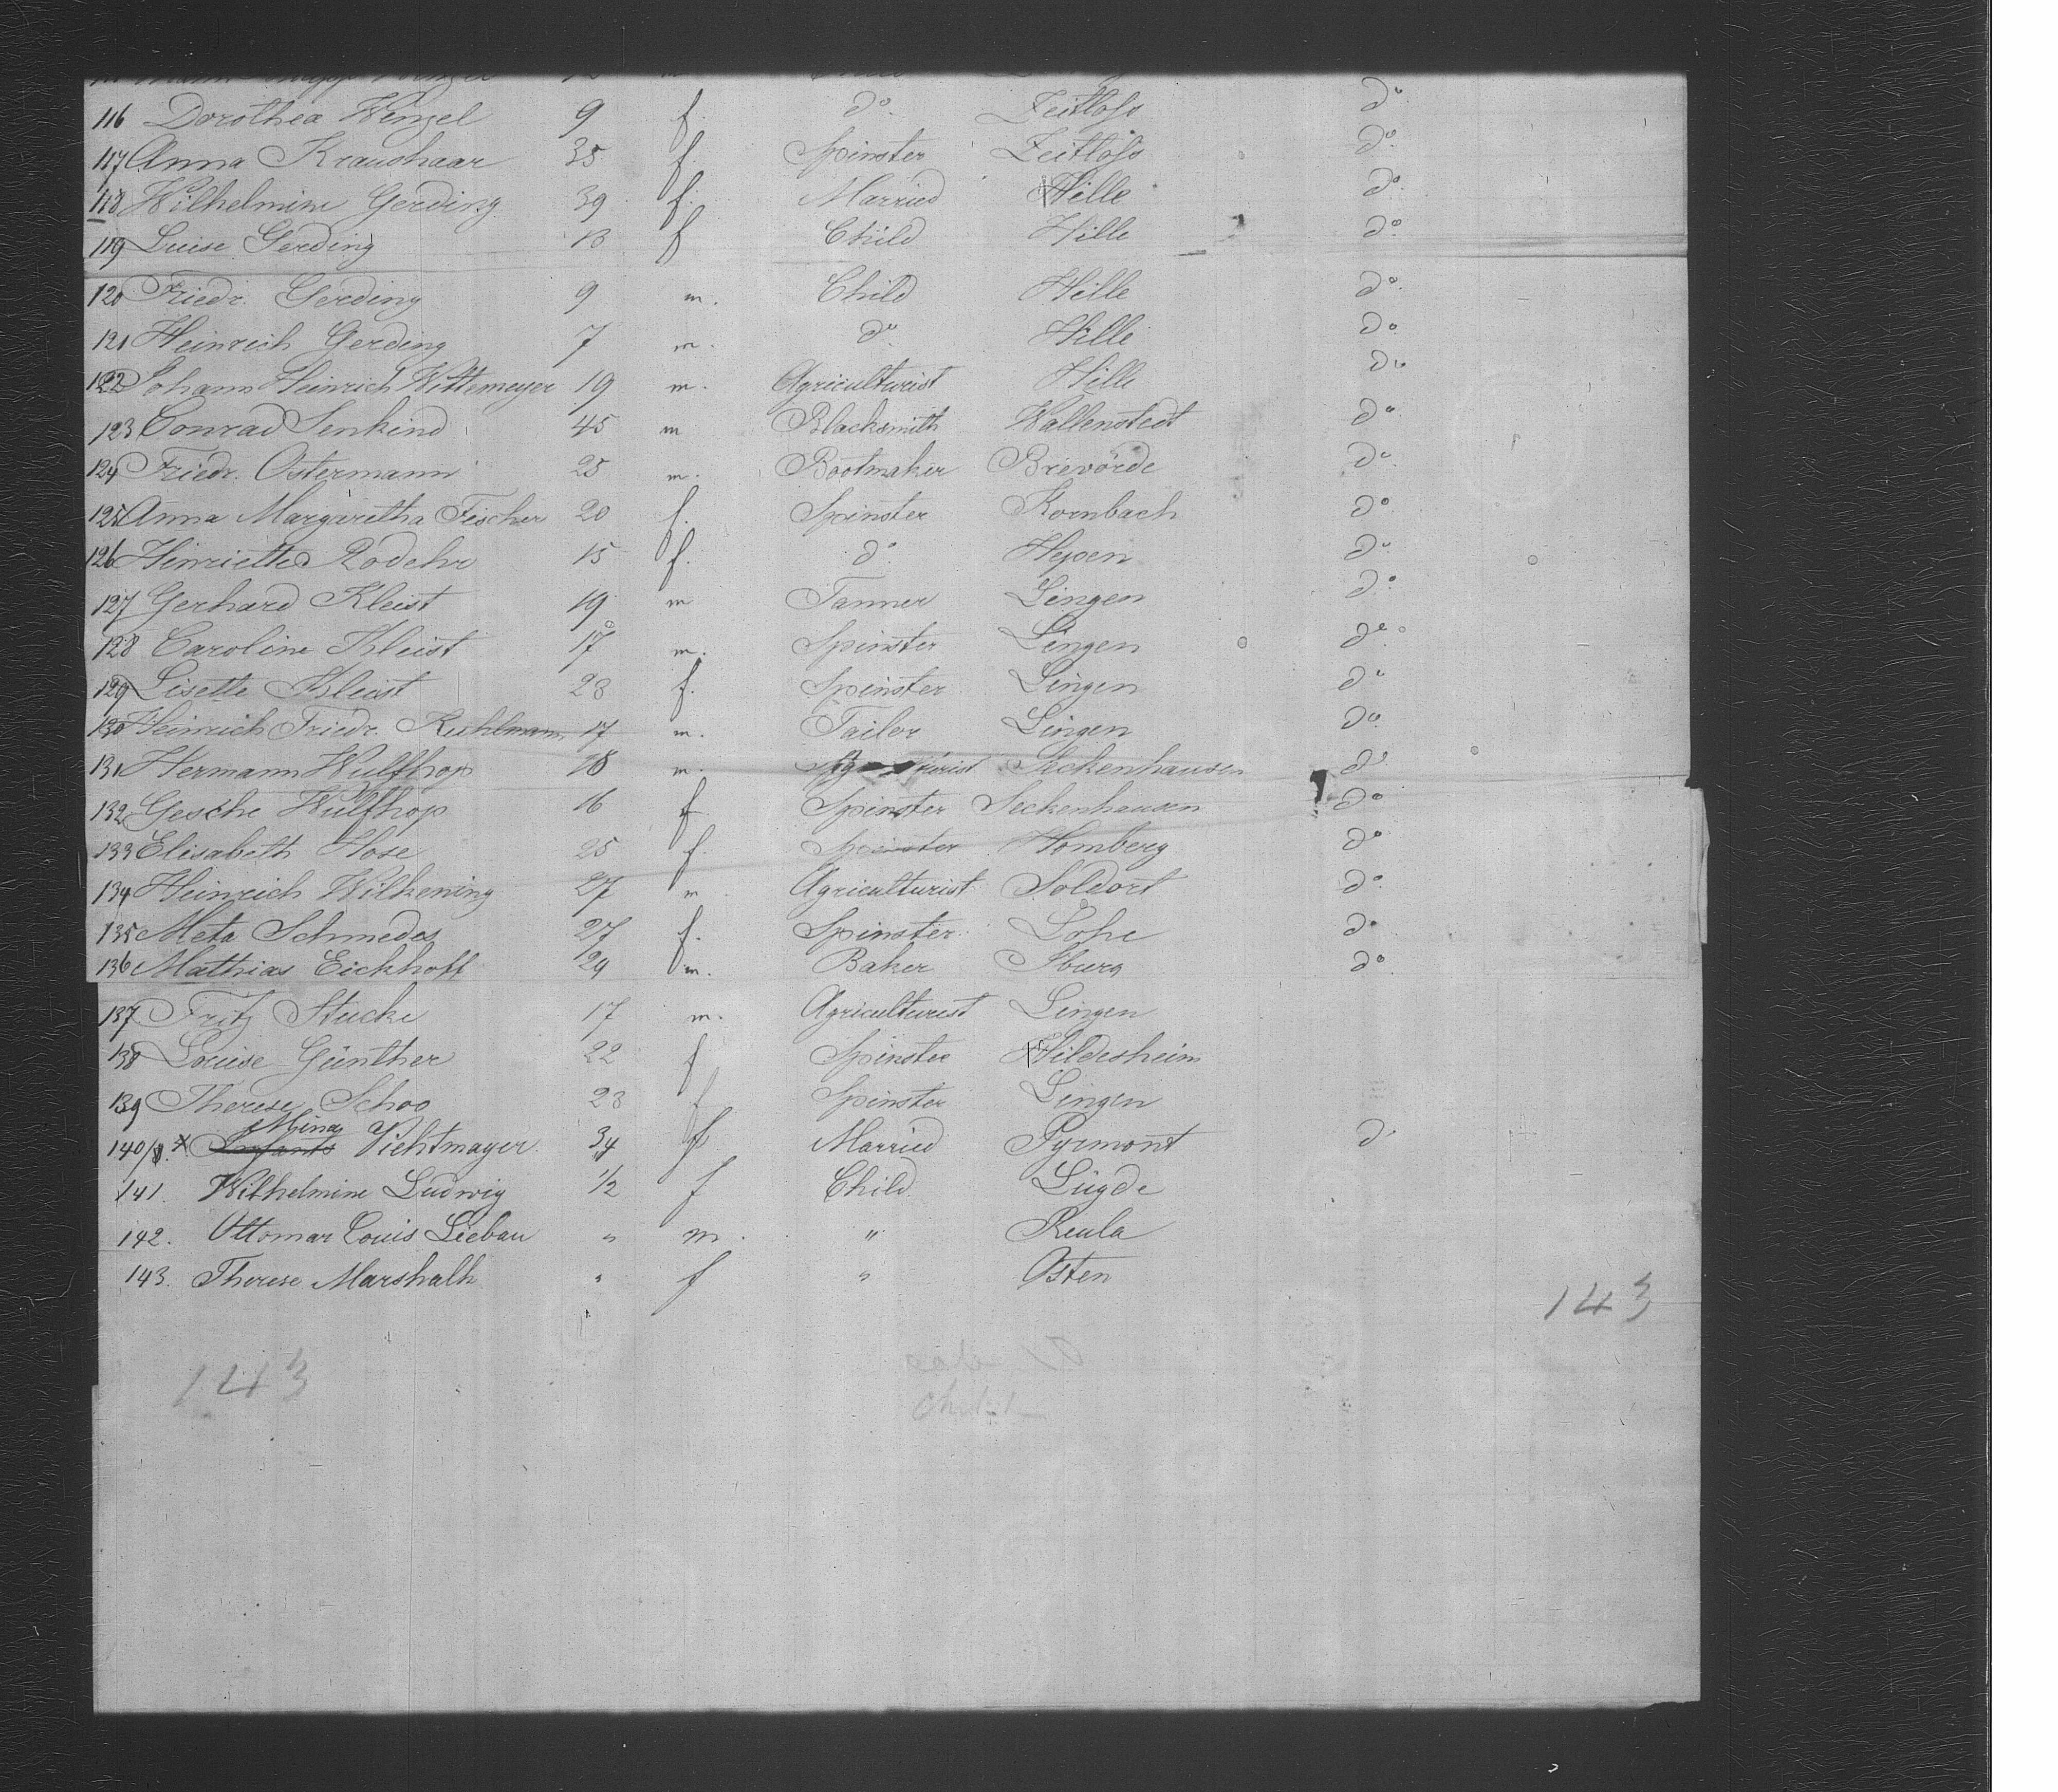 116 Dorothea Wenzel 9 f. do. Zeitlofs do.
117 Anna Kraushaar 35 f. Spinster Zeitlofs do.
118 Wilhelmine Gerding 39 f. Married Hille do.
119 Luise Gerding 13 f Child Hille do.
120 Friedr. Gerding 9 m. Child Hille do.
121 Heinrich Gerding 7 m. do. Hille do.
122 Johann Heinrich Wittemeyer 19 m. Agriculturist Hille do
123 Conrad Senkind 45 m Blacksmith Wallenstedt do.
124 Friedr. Ostermann 25 m. Bootmaker Brevörde do.
125 Anna Margaretha Fischer 20 f. Spinster Kornbach do.
126 Henriette Rodehr 15 f. do. Hepen do.
127 Gerhard Kleist 19 m Tanner Lingen do.
128 Caroline Kleist 17 m. Spinster Lingen do.
129 Lisette Kleist 23 f. Spinster Lingen do
130 Heinrich Friedr. Kuhlmann 17 m. Tailor Lingen do.
131 Hermann Wulfhop 18 m. Seckenhausen do
132 Gesche Wulfhop 16 f Spinster Seckenhausen do
133 Elisabeth Hose 25 f. Spinster Homberg do
134 Heinrich Wilkening 27 m Agriculturist Soldorf do.
135 Meta Schmedes 27 f. Spinster Lohe do
136 Mathias Eickhoff 24 m. Baker Iburg do.
137 Fritz Stucke 17 m. Agriculturist Lingen
138 Louise Günther 22 f Spinster Hildesheim
139 Therese Schoo 23 f Spinster Lingen
Mina
140 x Infants Vichtmayer 34 f Married Pyrmont do
141. Wilhelmine Ludwig 1/2 f Child Lügde
142. Ottomar Louis Liebau " m. " Keula
143. Therese Marshalk " f " Osten
143
143